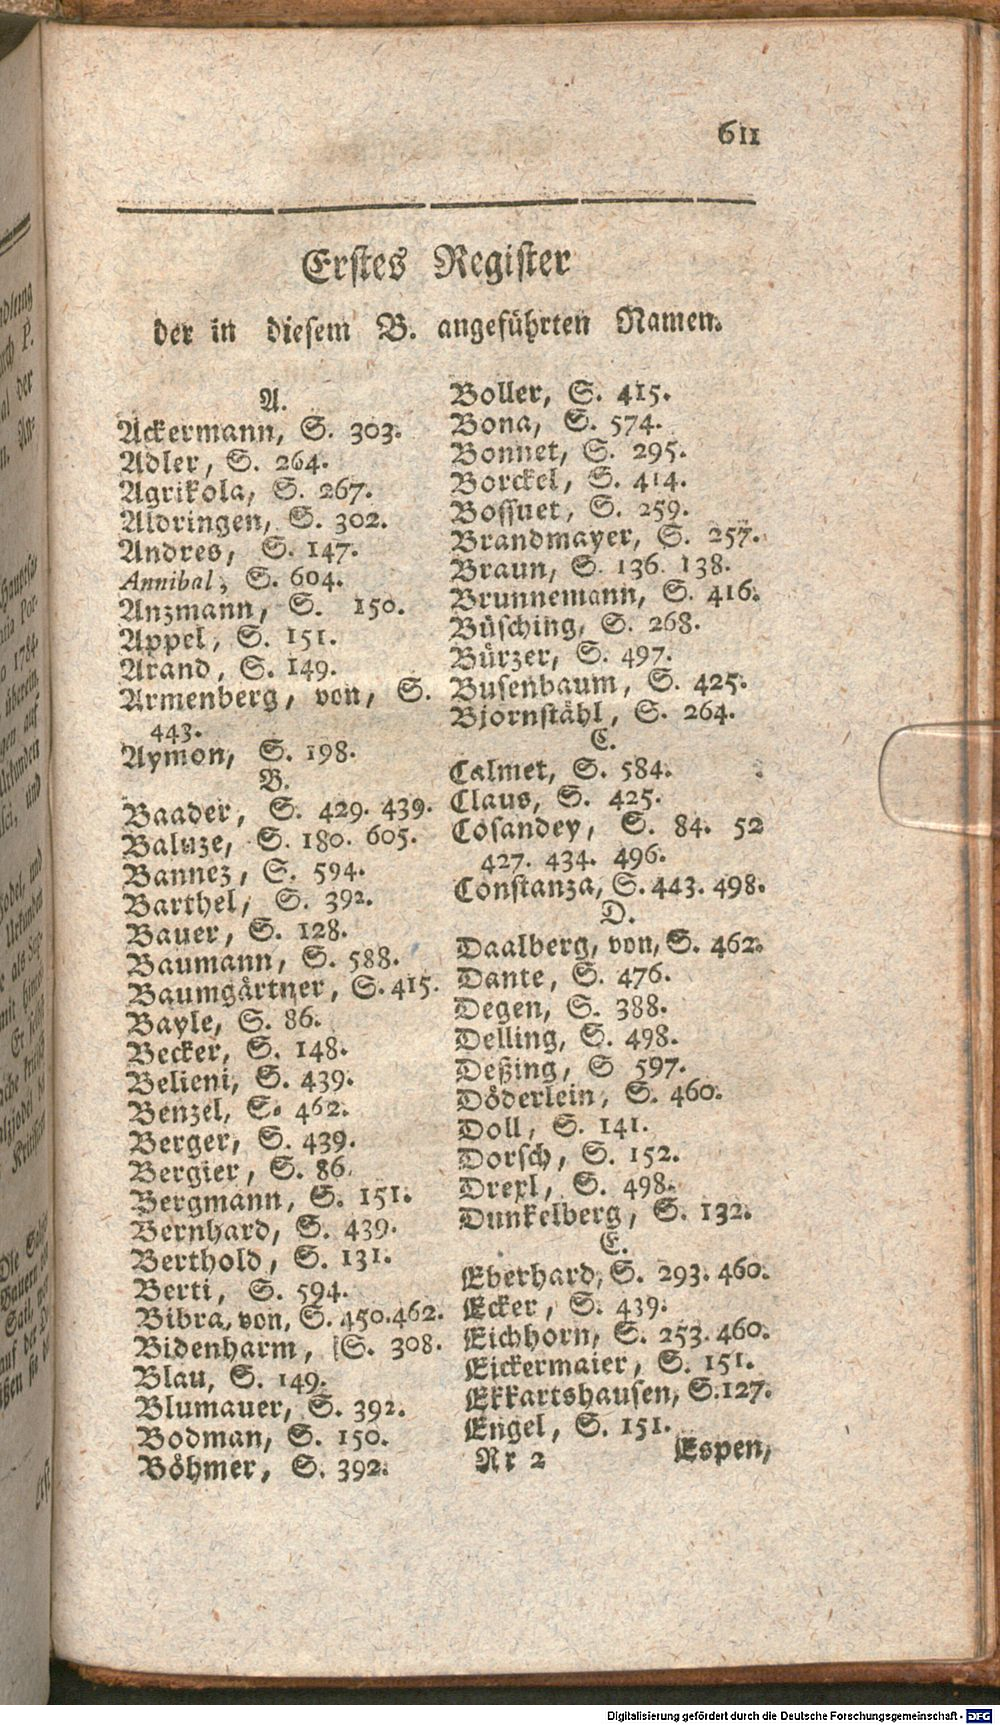 611
Erstes Register
der in diesem B. angeführten Namen.
A.
Ackermann, S. 303.
Adler, S. 264.
Agrikola, S. 267.
Aldringen, S. 302.
Andres, S. 147.
Annibal, S. 604.
Anzmann, S. 150.
Appel, S. 151.
Arand, S. 149.
Armenberg, von, S.
443.
Aymon, S. 198.
B.
Baader, S. 429. 439.
Baluze, S. 180. 605.
Bannez, S. 594.
Barthel, S. 392.
Bauer, S. 128.
Baumann, S. 588.
Baumgärtner, S. 415.
Bayle, S. 86.
Becker, S. 148.
Belieni, S. 439.
Benzel, S. 462.
Berger, S. 439.
Bergier, S. 86.
Bergmann, S. 151.
Bernhard, S. 439.
Berthold, S. 131.
Berti, S. 594.
Bibra, von, S. 450. 462.
Bidenharm, S. 308.
Blau, S. 149.
Blumauer, S. 392.
Bodman, S. 150.
Böhmer, S. 392.
Boller, S. 415.
Bona, S. 574.
Bonnet, S. 295.
Borckel, S. 414.
Bossuet, S. 259.
Brandmayer, S. 257.
Braun, S. 136. 138.
Brunnemann, S. 416.
Büsching, S. 268.
Bürzer, S. 497.
Busenbaum, S. 425.
Bjornstähl, S. 264.
C.
Calmet, S. 584.
Claus, S. 425.
Cosandey, S. 84. 52
427. 434. 496.
Constanza, S. 443. 498.
D.
Daalberg, von, S. 462.
Dante, S. 476.
Degen, S. 388.
Delling, S. 498.
Deßing, S 597.
Döderlein, S. 460.
Doll, S. 141.
Dorsch, S. 152.
Drexl, S. 498.
Dunkelberg, S. 132.
E.
Eberhard, S. 293. 460.
Ecker, S. 439.
Eichhorn, S. 253. 460.
Eickermaier, S. 151.
Ekkartshausen, S. 127.
Engel, S. 151.
Rr 2 Espen,
Digitalisierung gefördert durch die Deutsche Forschungsgemeinschaft - DFG